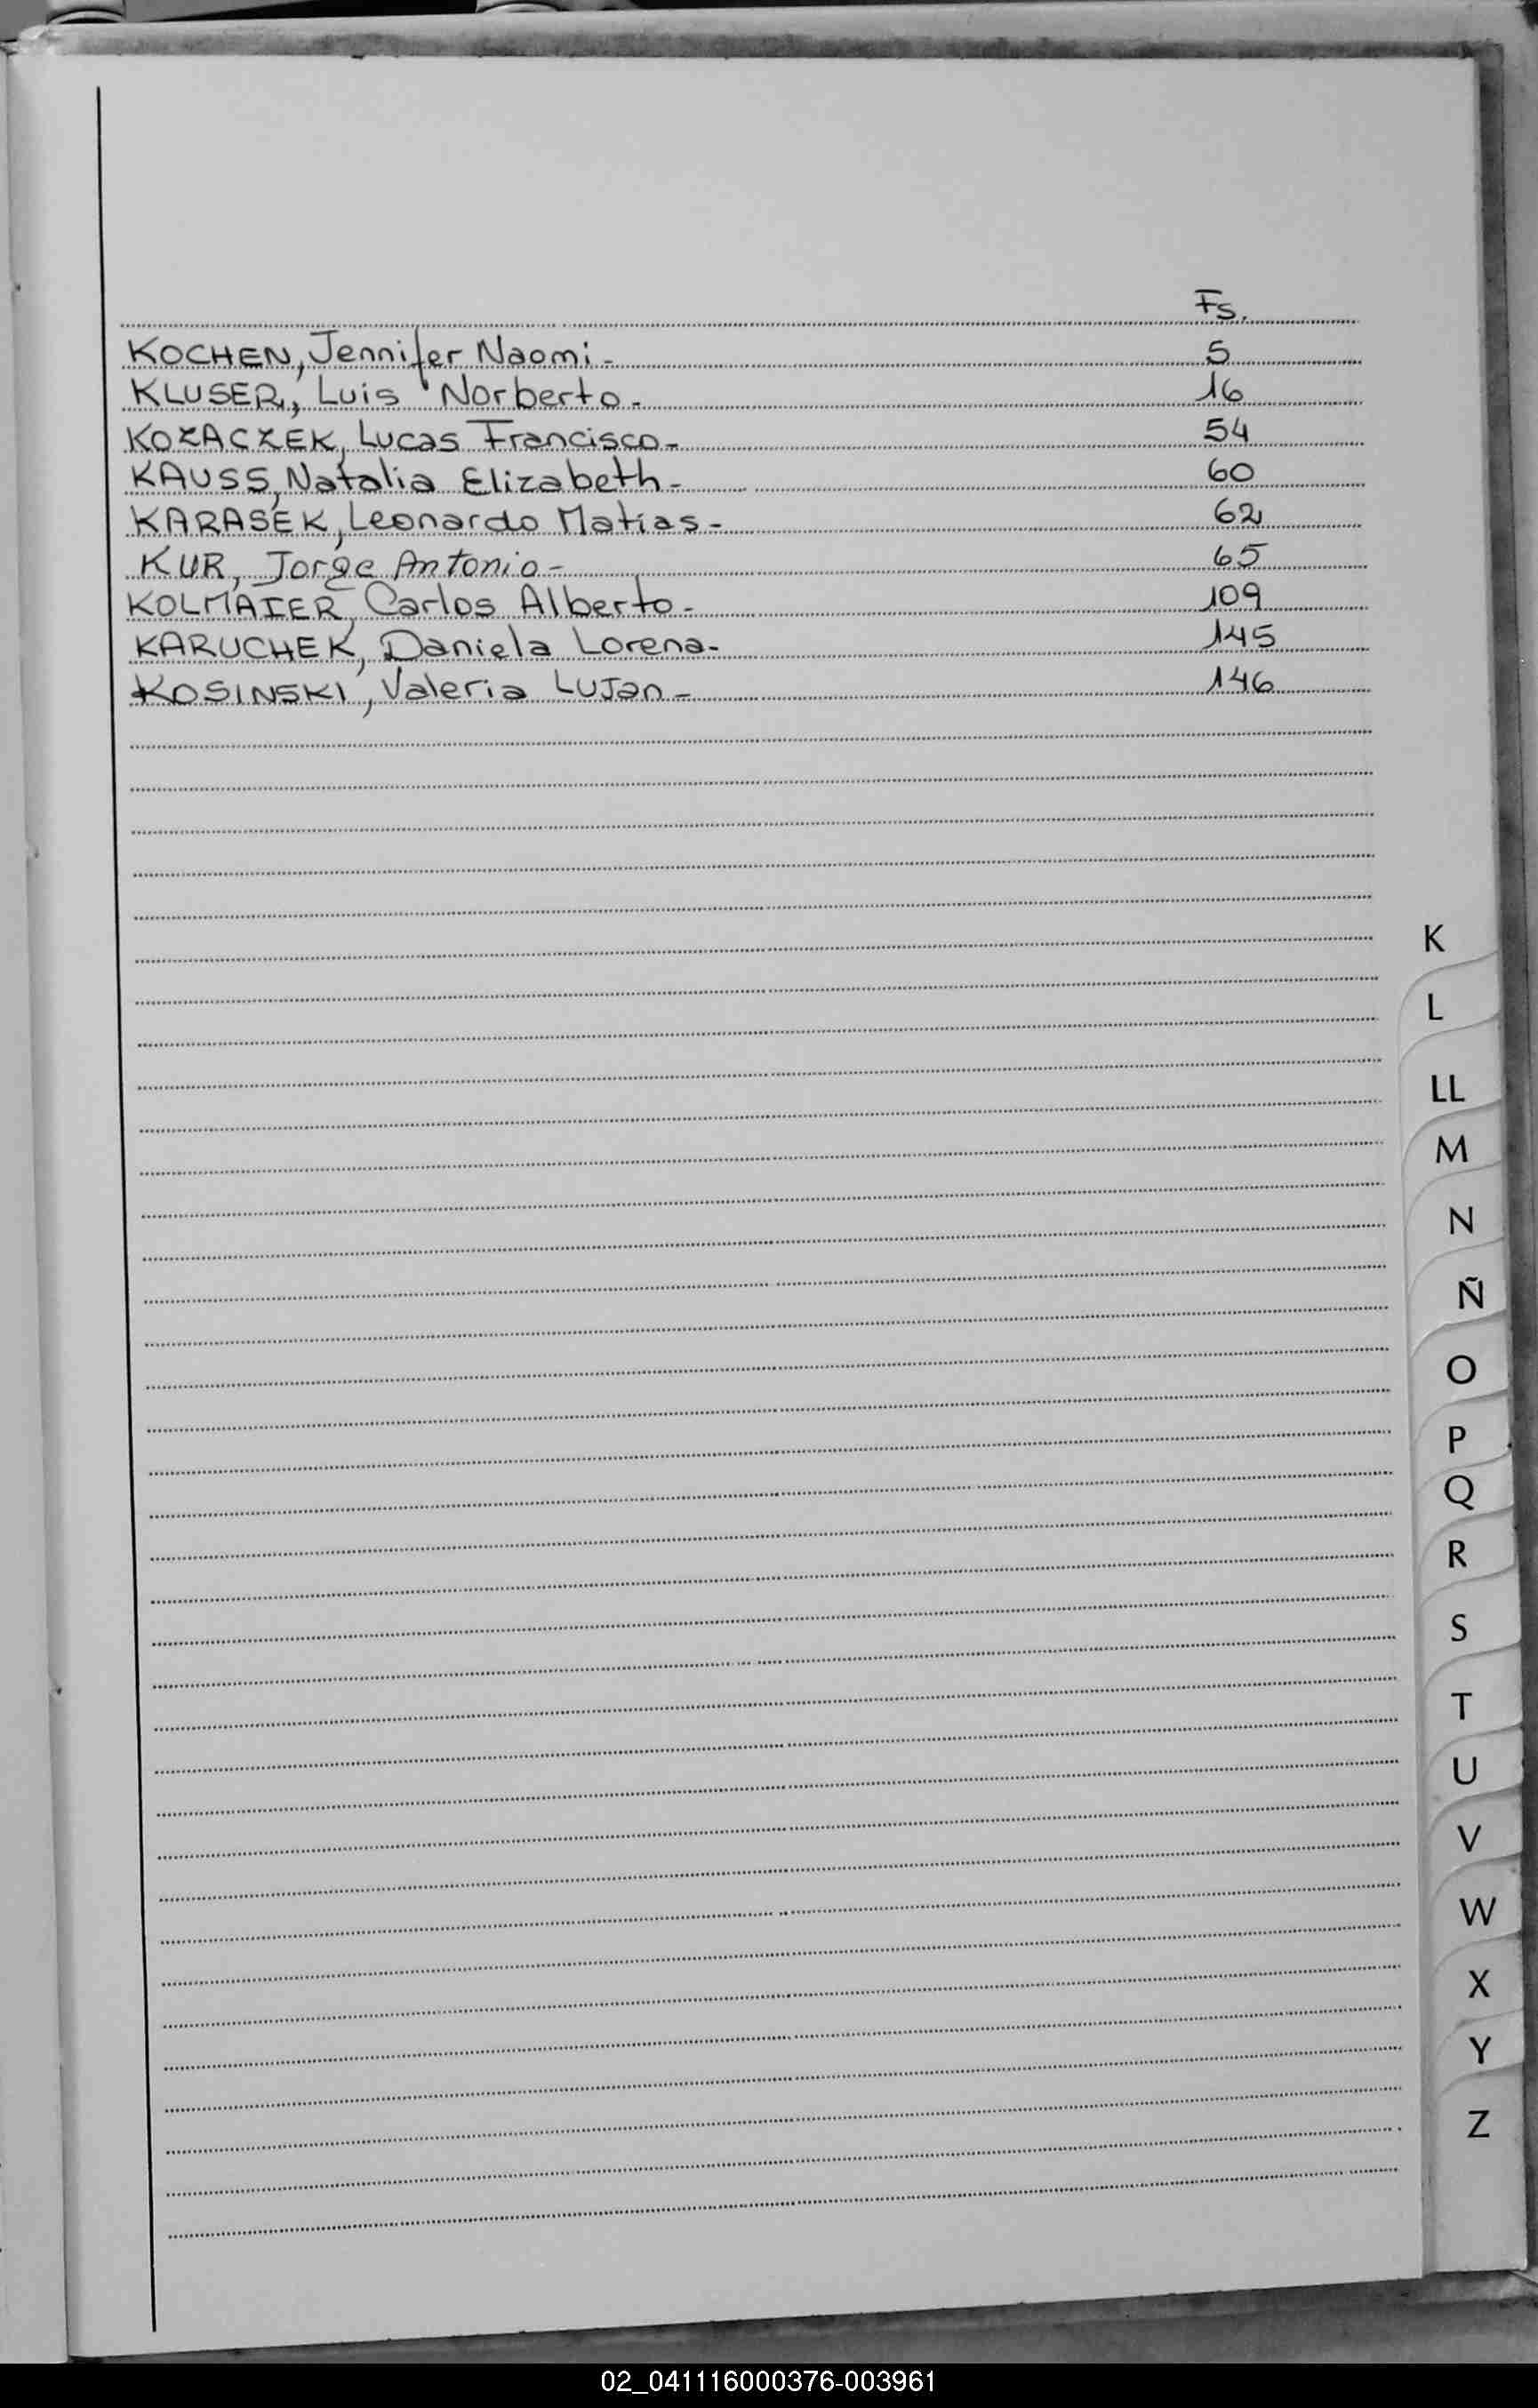 Fs.
KOCHEN, Jennifer Naomi - 5
KLUSER, Luis Norberto - 16
KOZACZEK, Lucas Francisco - 54
KAUSS, Natalia Elizabeth - 60
KARASEK, Leonardo Matias - 62
KUR, Jorge Antonio - 65
KOLMAIER, Carlos Alberto - 109
KARUCHEK, Daniela Lorena - 145
KOSINSKI, Valeria Lujan - 146
K
L
LL
M
N
Ñ
O
P
Q
R
S
T
U
V
W
X
Y
Z
02_041116000376-003961